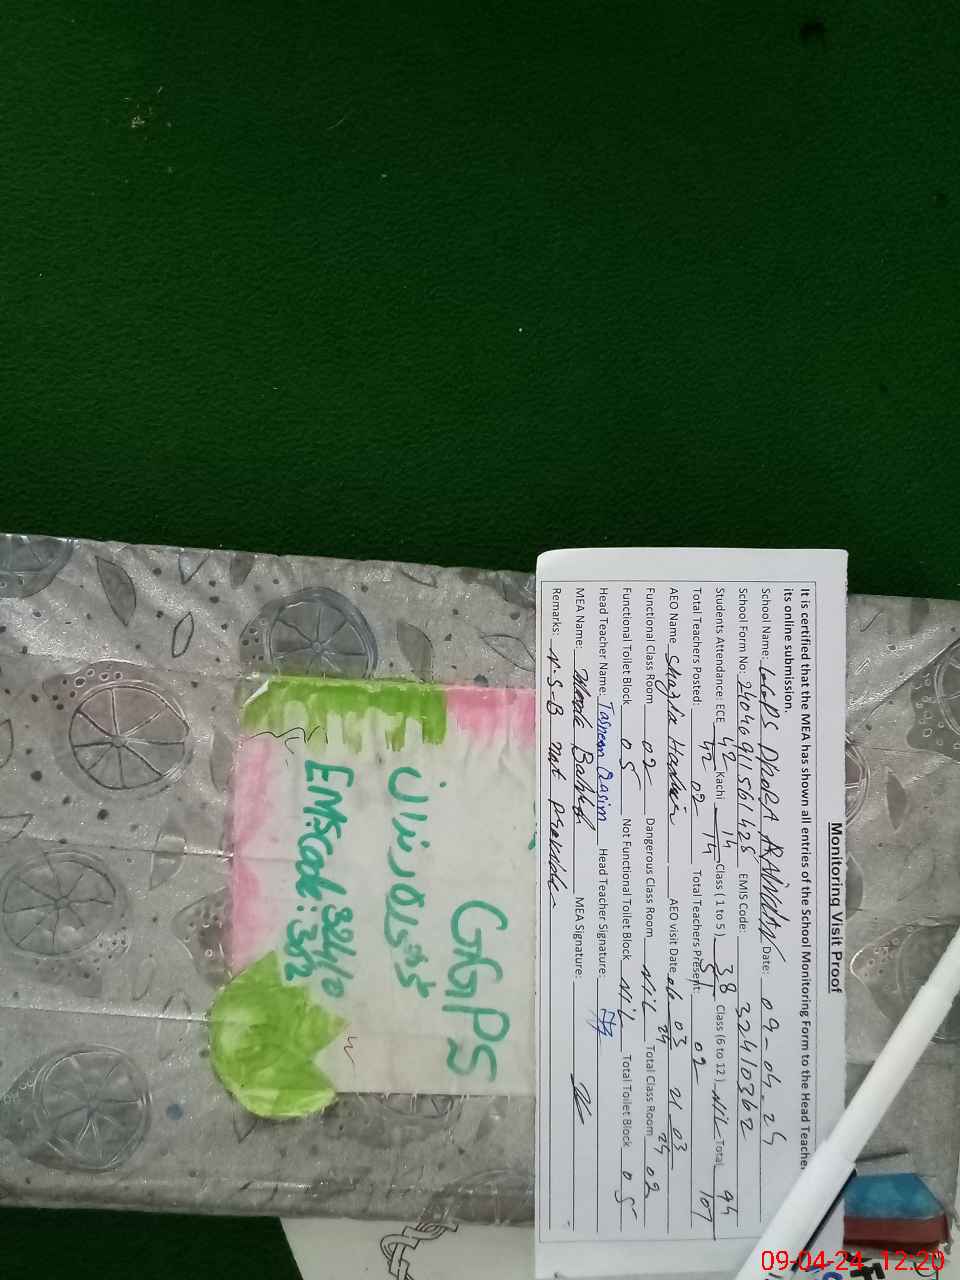 Monitoring Visit Proof
It is certified that the MEA has shown all entries of the School Monitoring Form to the Head Teacher
its online submission.
School Name: Date: 09-04-24
School Form No: EMIS Code: 32410362
Students Attendance: ECE 42 Kachi 14 Class ( 1 to 5 ) 38 Class (6 to 12 ) Nil Total 94
42 14 51 107
Total Teachers Posted: 02 Total Teachers Present: 02
AEO Name AEO visit Date 03 24 21 03 24
Functional Class Room 02 Dangerous Class Room Nil Total Class Room 02
Functional Toilet Block 05 Not Functional Toilet Block Nil Total Toilet Block 05
Head Teacher Name: Tasneem Qasim Head Teacher Signature:
MEA Name: MEA Signature:
Remarks: N-S-B not
GGPS
EMIS code: 32410
362
09-04-24 12:20